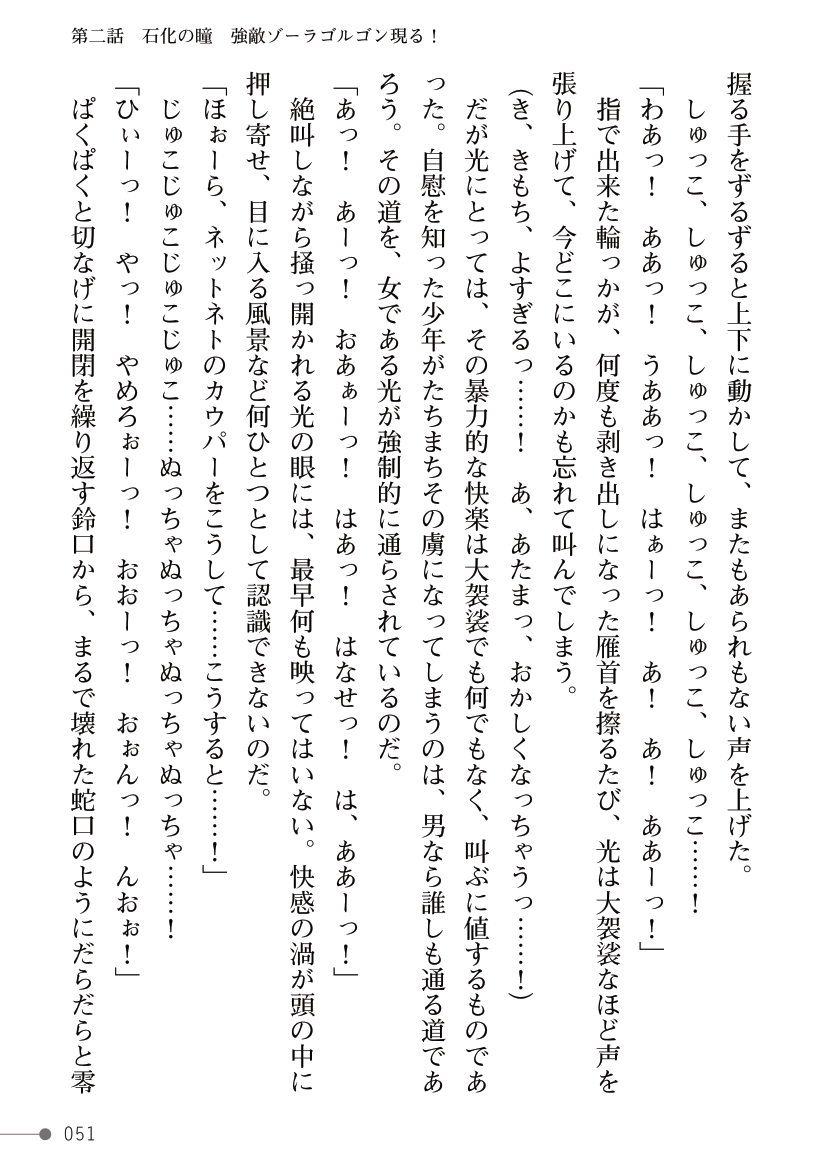 第二話　石化の瞳　強敵ゾーラゴルゴン現る！
握る手をずるずると上下に動かして、またもあられもない声を上げた。
しゅっこ、しゅっこ、しゅっこ、しゅっこ、しゅっこ、しゅっこ……！
「わあっ！　ああっ！　うああっ！　はぁーっ！　あ！　あ！　ああーっ！」
指で出来た輪っかが、何度も剥き出しになった雁首を擦るたび、光は大袈裟なほど声を
張り上げて、今どこにいるのかも忘れて叫んでしまう。
（き、きもち、よすぎるっ……！　あ、あたまっ、おかしくなっちゃうっ……！）
だが光にとっては、その暴力的な快楽は大袈裟でも何でもなく、叫ぶに値するものであ
った。自慰を知った少年がたちまちその虜になってしまうのは、男なら誰しも通る道であ
ろう。その道を、女である光が強制的に通らされているのだ。
「あっ！　あーっ！　おあぁーっ！　はあっ！　はなせっ！　は、ああーっ！」
絶叫しながら掻っ開かれる光の眼には、最早何も映ってはいない。快感の渦が頭の中に
押し寄せ、目に入る風景など何ひとつとして認識できないのだ。
「ほぉーら、ネットネトのカウパーをこうして……こうすると……！」
じゅこじゅこじゅこじゅこ……ぬっちゃぬっちゃぬっちゃぬっちゃ……！
「ひぃーっ！　やっ！　やめろぉーっ！　おおーっ！　おぉんっ！　んおぉ！」
ぱくぱくと切なげに開閉を繰り返す鈴口から、まるで壊れた蛇口のようにだらだらと零
051